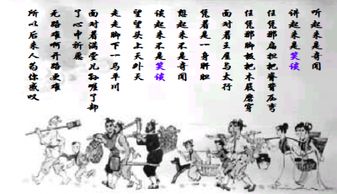 听起来是奇闻
讲起来是笑谈
任凭那扁担把脊背压弯
任凭那脚板把木屐磨穿
面对着王屋与太行
凭着是一身肝胆
想起来不是奇闻
谈起来不是笑谈
望望头上天外天
走走脚下一马平川
面对着满堂儿孙了却
了心中祈愿
无路难啊开路更难
所以后来人为你感叹